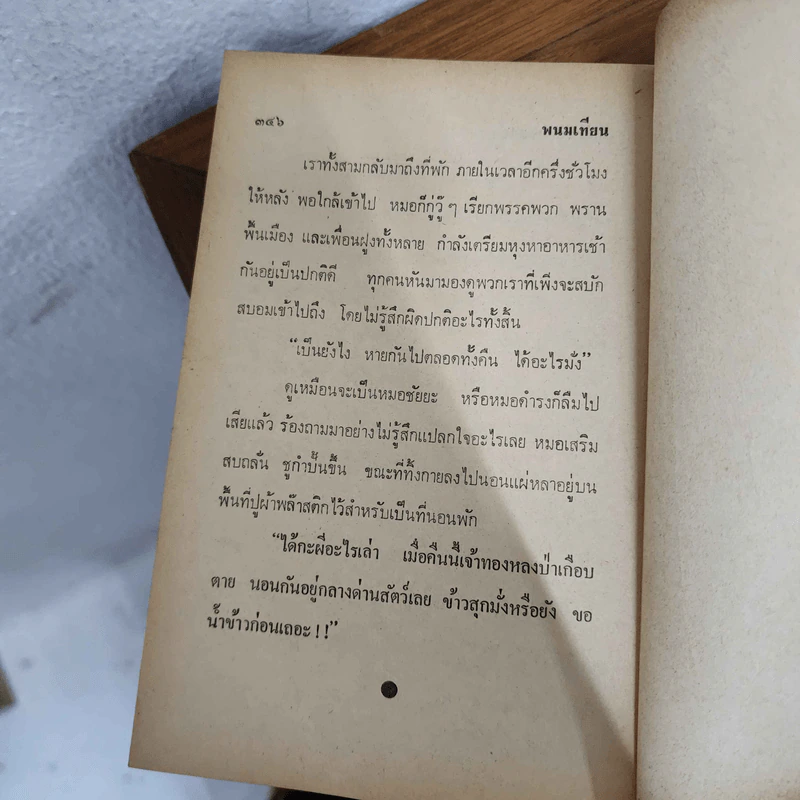 ๓๔๖ พนมเทียน
เราทั้งสามกลับมาถึงที่พัก ภายในเวลาอีกครึ่งชั่วโมง
ให้หลัง พอใกล้เข้าไป หมอก็กู่วู๊ ๆ เรียกพรรคพวก พราน
พื้นเมือง และเพื่อนฝูงทั้งหลาย กำลังเตรียมหุงหาอาหารเช้า
กันอยู่เป็นปกติดี ทุกคนหันมามองดูพวกเราที่เพิ่งจะสบัก
สบอมเข้าไปถึง โดยไม่รู้สึกผิดปกติอะไรทั้งสิ้น
“เป็นยังไง หายกันไปตลอดทั้งคืน ได้อะไรมั่ง”
ดูเหมือนจะเป็นหมอชัยยะ หรือหมอดำรงก็ลืมไป
เสียแล้ว ร้องถามมาอย่างไม่รู้สึกแปลกใจอะไรเลย หมอเสริม
สบถลั่น ชูกำปั้นขึ้น ขณะที่ทิ้งกายลงไปนอนแผ่หลาอยู่บน
พื้นที่ปูผ้าพล๊าสติกไว้สำหรับเป็นที่นอนพัก
“ได้กะผีอะไรเล่า เมื่อคืนนี้เจ้าทองหลงป่าเกือบ
ตาย นอนกันอยู่กลางด่านสัตว์เลย ข้าวสุกมั่งหรือยัง ขอ
น้ำข้าวก่อนเถอะ ! !”